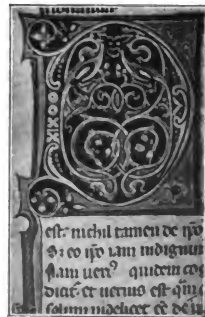 est nichil tamen de ip̄o
Si eo ip̄o iam indignum
Nam uerꝰ quidem co
dicit et uerius est qui
solum uidelicet ee de